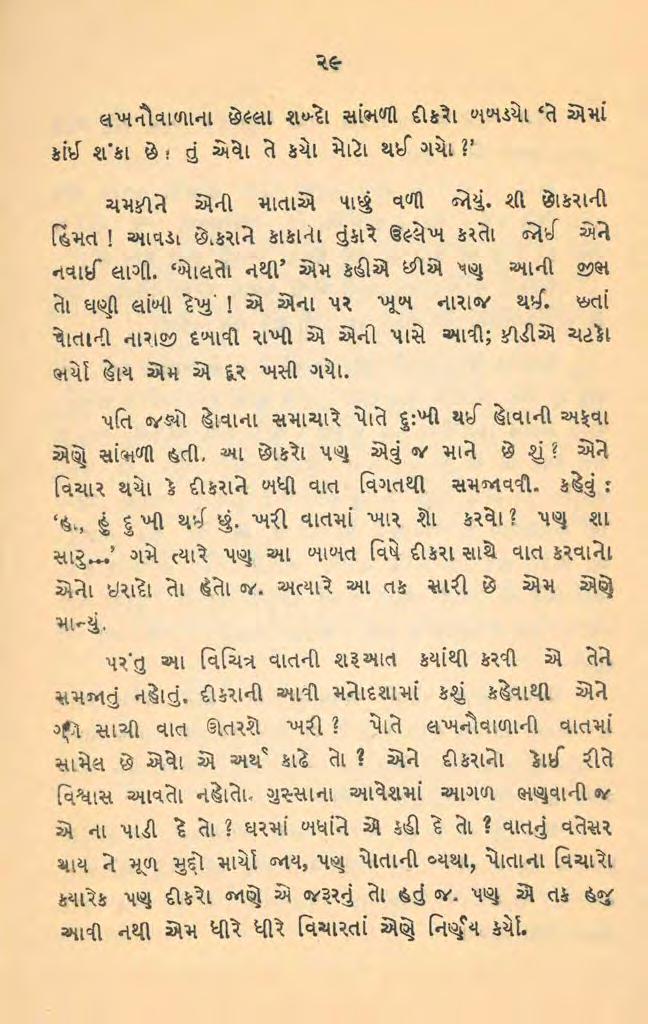 ૨૯
લખનૌવાળાના છેલ્લા શબ્દો સાંભળી દીકરો બબડયો ‘તે એમાં
કાંઈ શંકા છે ! તું એવો તે કયો મોટો થઈ ગયો ?’
ચમકીને એની માતાએ પાછું વળી જોયું. શી છોકરાની
હિંમત ! આવડા છોકરાને કાકાના તુંકારે ઉલ્લેખ કરતો જોઈ એને
નવાઈ લાગી. ‘બોલતો નથી’ એમ કહીએ છીએ પણ આની જીભ
તો ઘણી લાંબી દેખું ! એ એના પર ખૂબ નારાજ થઈ. છતાં
પોતાની નારાજી દબાવી રાખી એ એની પાસે આવી; કીડીએ ચટકો
ભર્યો હોય એમ એ દૂર ખસી ગયો.
પતિ જડ્યો હોવાના સમાચારે પોતે દુઃખી થઈ હોવાની અફવા
એણે સાંભળી હતી. આ છોકરો પણ એવું જ માને છે શું ? એને
વિચાર થયો કે દીકરાને બધી વાત વિગતથી સમજાવવી. કહેવું :
‘હા, હું દુ ખી થઈ છું. ખરી વાતમાં ખાર શો કરવો ? પણ શા
સારુ...’ ગમે ત્યારે પણ આ બાબત વિષે દીકરા સાથે વાત કરવાનો
એનો ઇરાદો તો હતો જ. અત્યારે આ તક સારી છે એમ એણે
માન્યું.
પરંતુ આ વિચિત્ર વાતની શરૂઆત કયાંથી કરવી એ તેને
સમજાતું નહોતું. દીકરાની આવી મનોદશામાં કશું કહેવાથી એને
સાચી વાત ઊતરશે ખરી ? પોતે લખનૌવાળાની વાતમાં
સામેલ છે એવો એ અર્થ કાઢે તો ? એને દીકરાનો કોઈ રીતે
વિશ્વાસ આવતો નહોતો. ગુસ્સાના આવેશમાં આગળ ભણવાની જ
એ ના પાડી દે તો ? ઘરમાં બધાંને એ કહી દે તો ? વાતનું વતેસર
થાય ને મૂળ મુદ્દો માર્યો જાય, પણ પોતાની વ્યથા, પોતાના વિચારો
કયારેક પણ દીકરો જાણે એ જરૂરનું તો હતું જ. પણ એ તક હજુ
આવી નથી એમ ધીરે ધીરે વિચારતાં એણે નિર્ણય કર્યો.